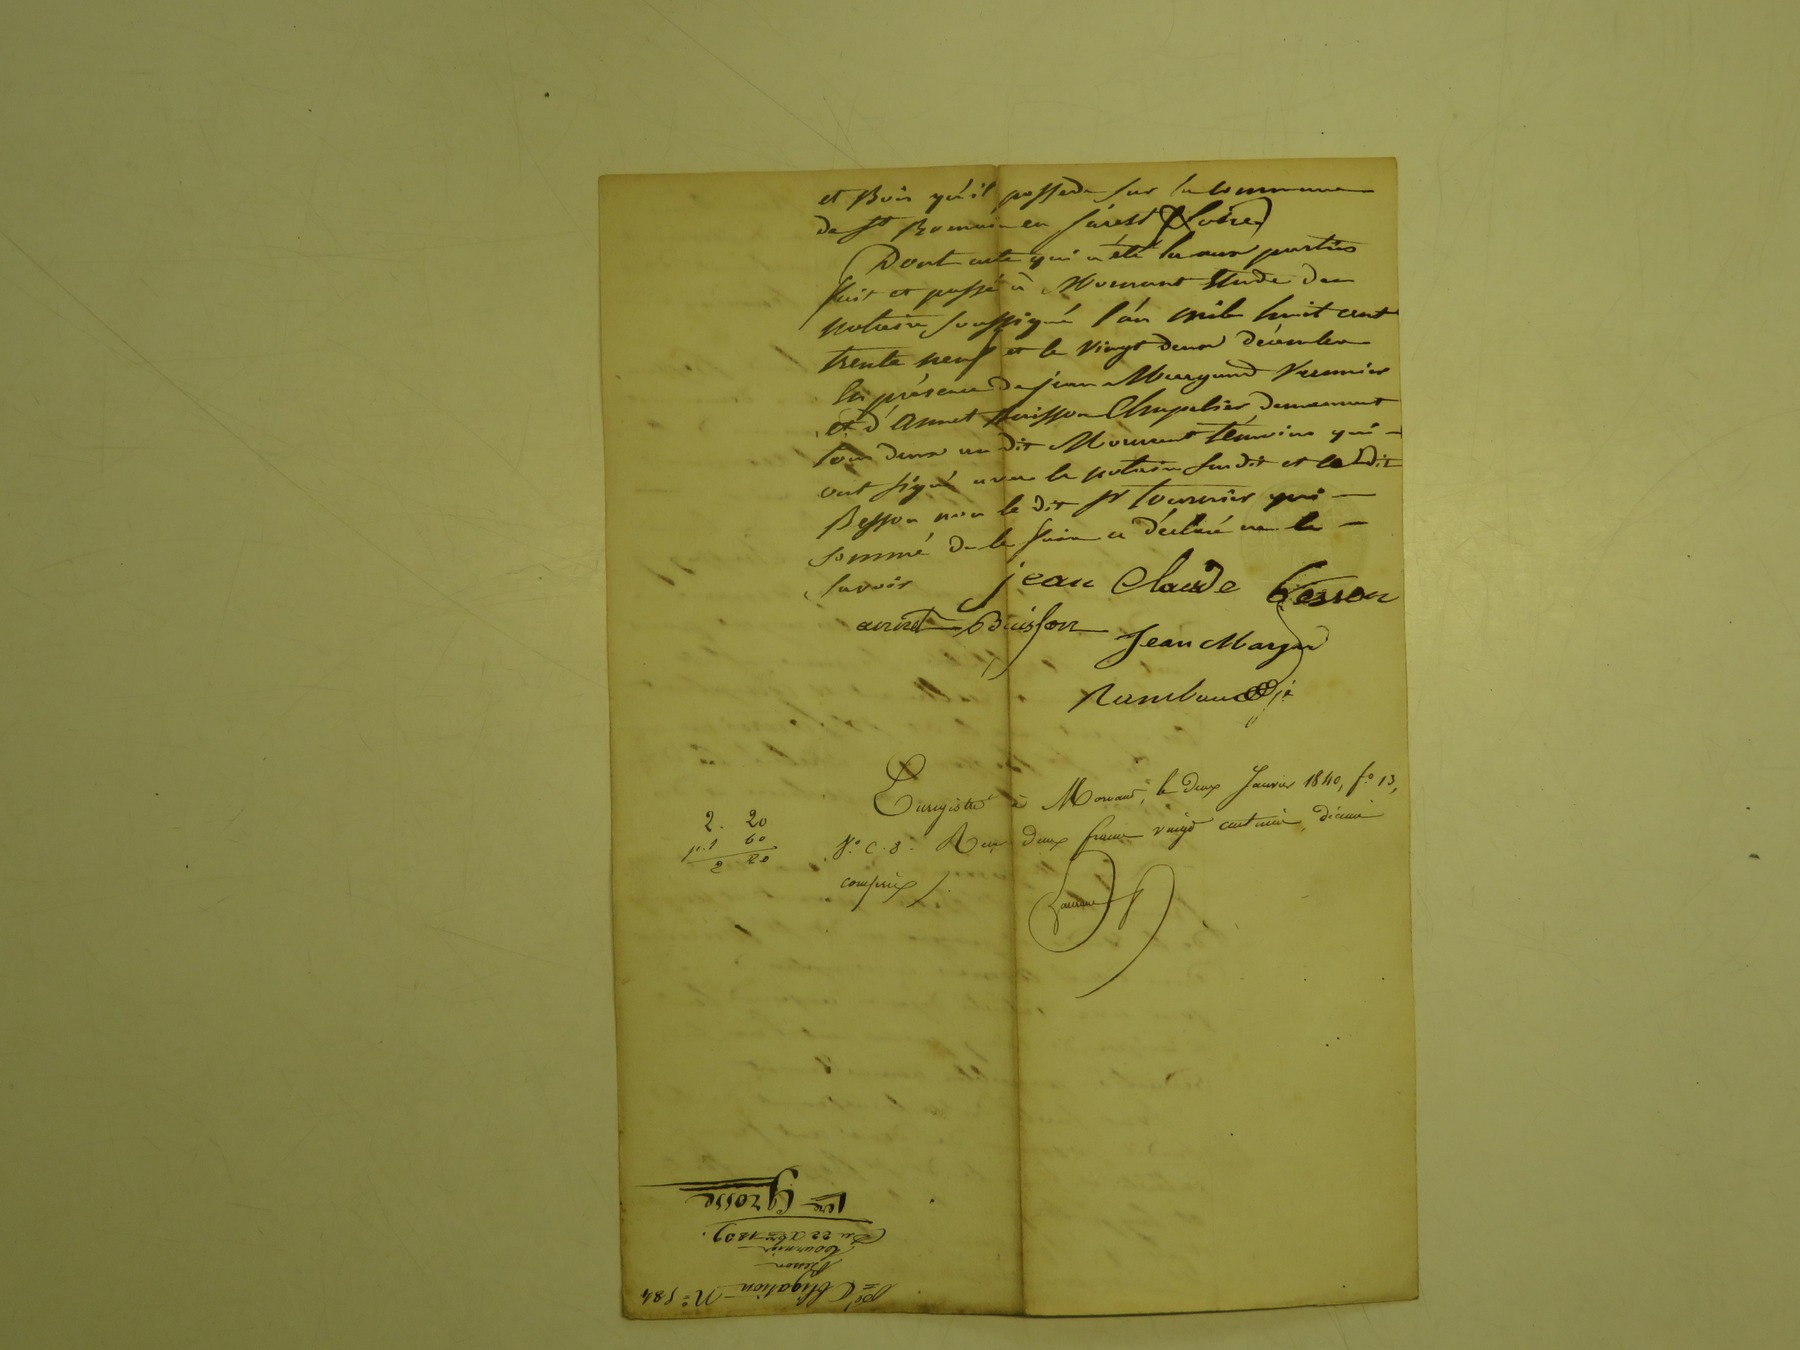 et Bois qu'il possede sur la commune
de St Romain en Jarest (Loire)
Dont acte qui a été lu aux parties
fait et passé à Mornant Etude du
notaire soussigné l'an mil huit cent
trente neuf et le vingt deux décembre
En présence de jean Margand Verunier
et d'Annet Buisson Chapelier demeurant
tous deux au dit Mornant témoins qui
ont signé avec le notaire susdit et le dit
Besson non le dit Sr tournier qui
sommé de le faire a déclaré ne le
savoir
jean Claude besson
annet Buisson
Jean Margan
Rambaud
Enregistré à Mornant, le deux Janvier 1840, fo 13,
Vo C. 8. Reçu deux francs vingt centimes, décime
compris
2. 20
60
2 80
Obligation No 584
Besson
Tournier
Du 22 Xbre 1839.
1ere Grosse